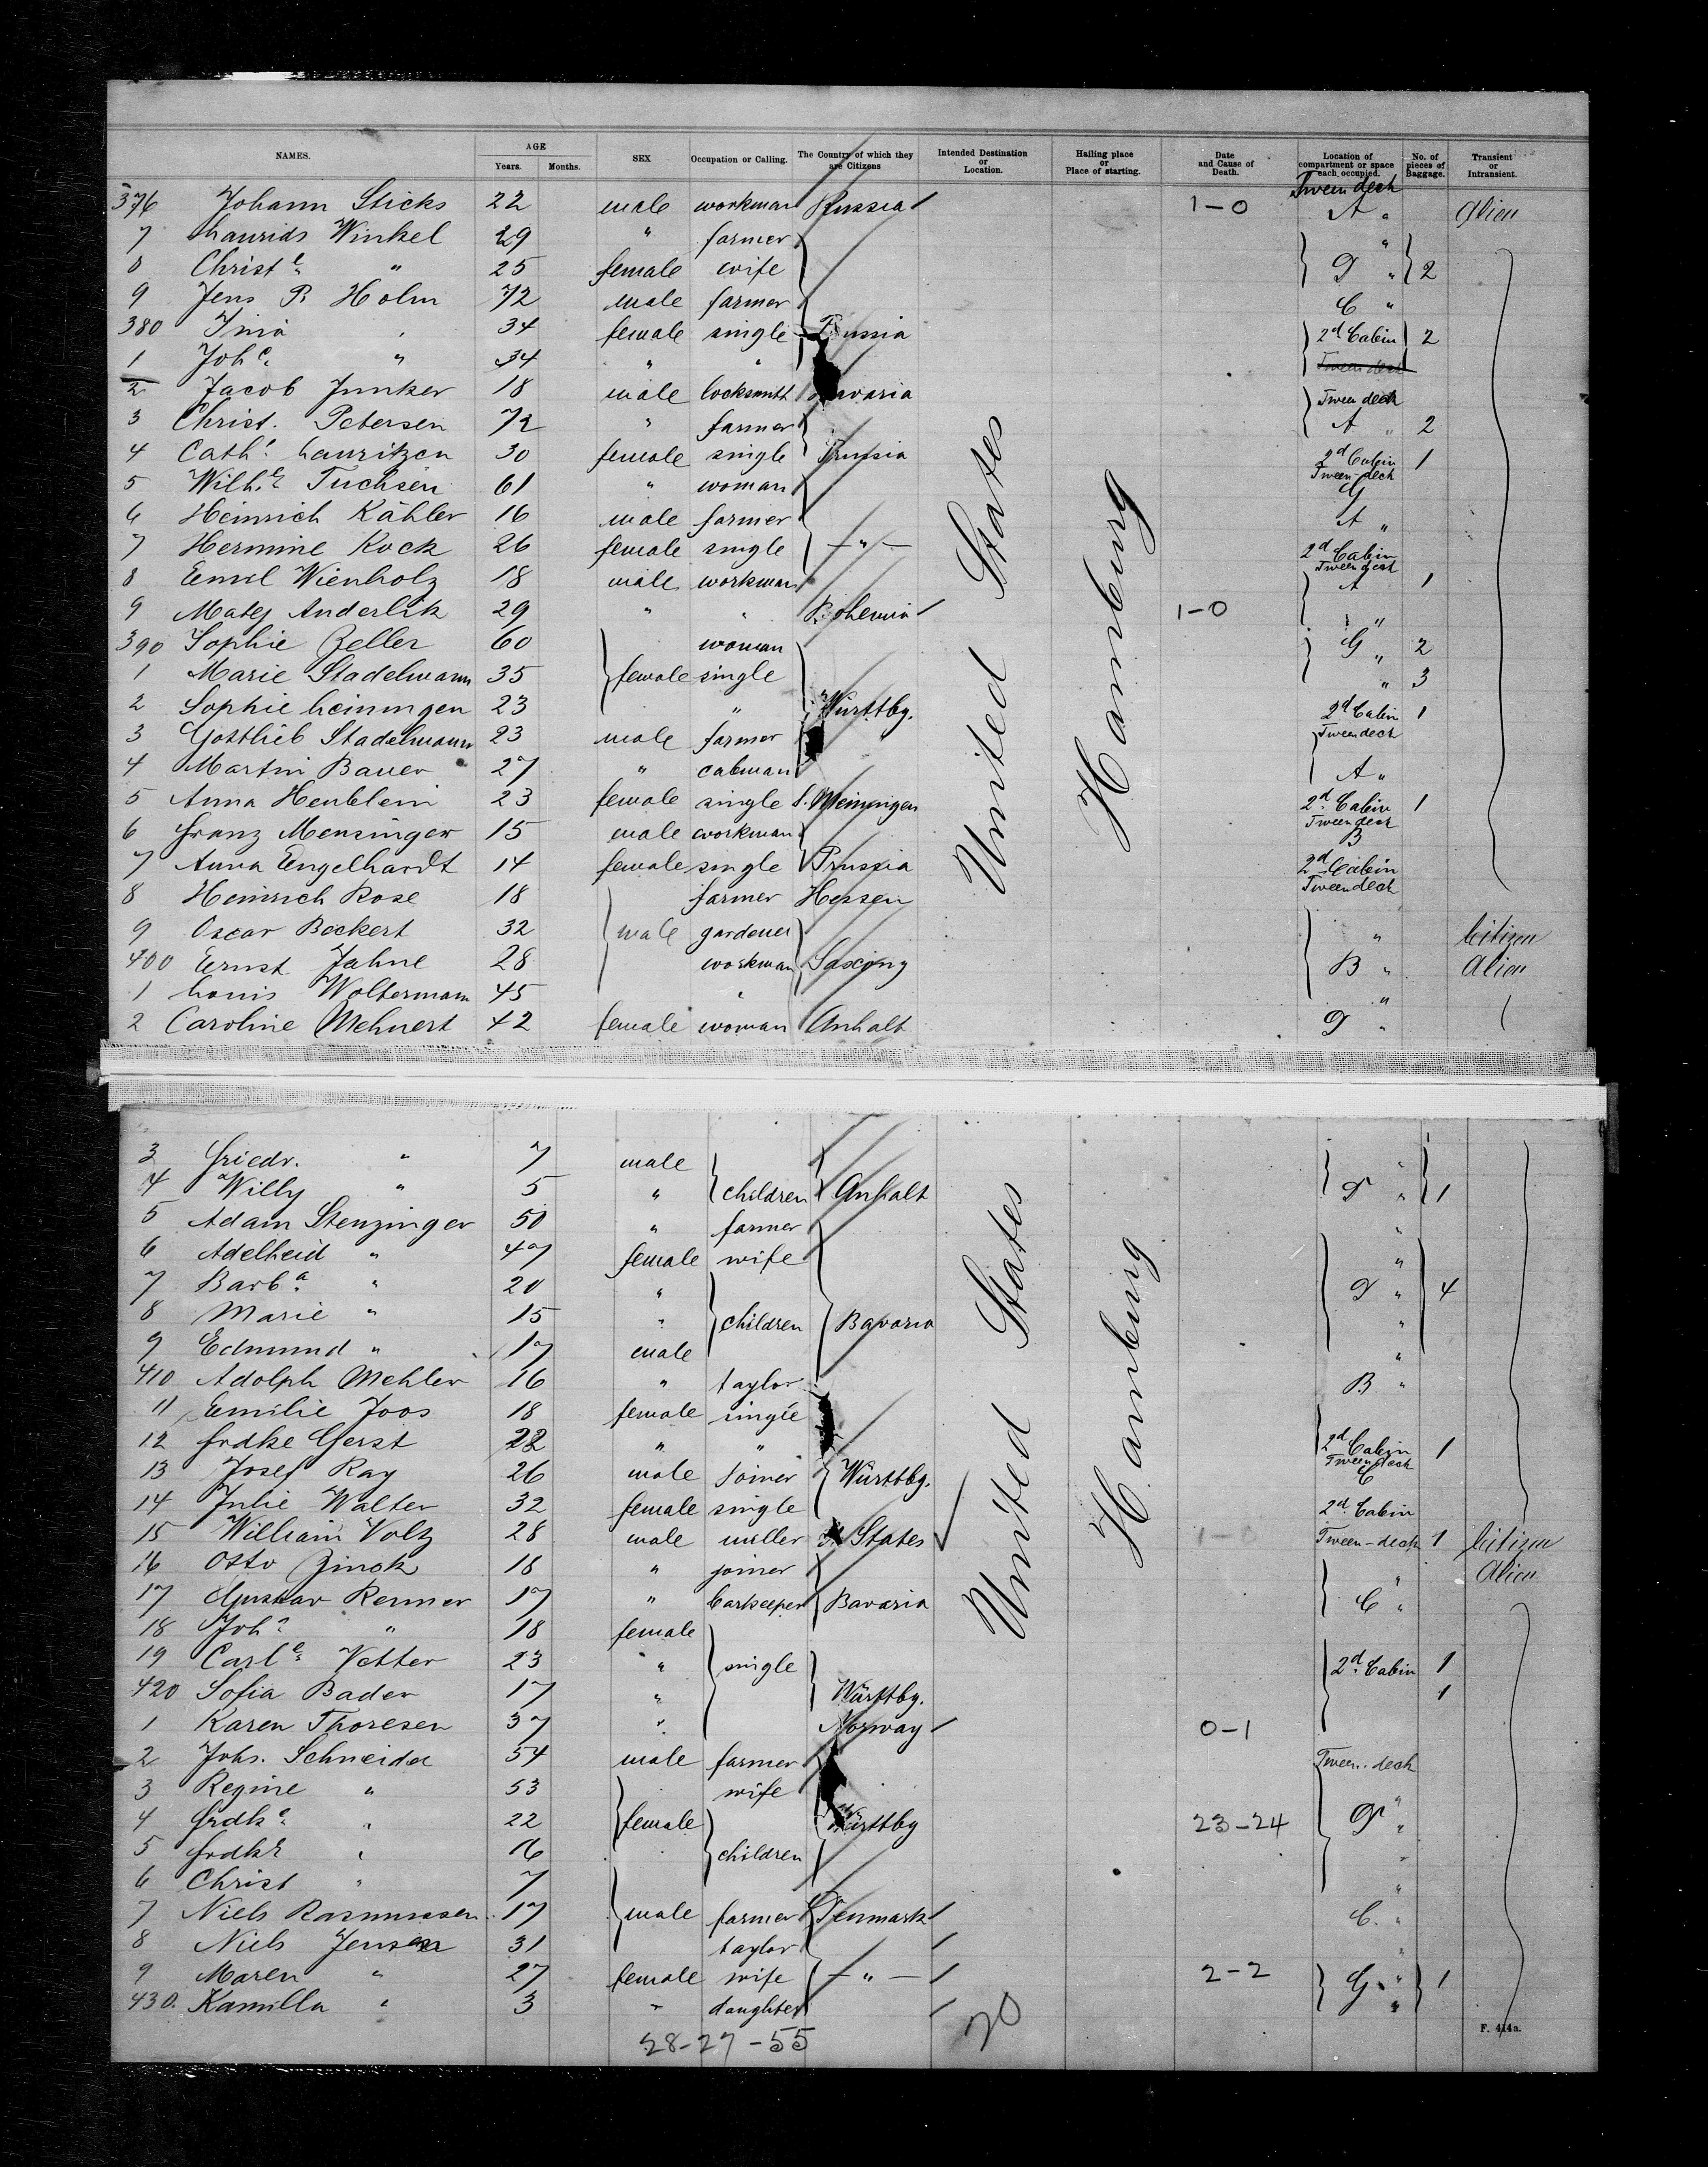 NAMES. AGE Years. Months. SEX Occupation or Calling. The Country of which they are Citizens Intended Destination or Location. Hailing place or Place of starting. Date and Cause of Death. Location of compartment or space each occupied. No. of pieces of Baggage. Transient or Intransient.
Tween deck
376 Johann Sticks 22 male workman Russia 1-0 A " Alien
7 Laurids Winkel 29 " farmer "
8 Christe " 25 female wife D " 2
9 Jens P. Holm 72 male farmer C "
380 34 female single Prussia 2d Cabin 2
1 Johe " 34 " " Tween deck
2 Jacob Junker 18 male locksmith Bavaria Tween deck
3 Christ. Petersen 72 " farmer A " 2
4 Cathe Lauritzen 30 female single Prussia 2d Cabin 1
5 Wilhe Tuchsen 61 " woman Tween deck G
6 Heinrich Kähler 16 male farmer A "
7 Hermine Kock 26 female single - " - 2d Cabin
8 Emil Wienholz 18 male workman Tween deck A 1
9 Matej Anderlik 29 " " Bohemia 1-0 "
390 Sophie Zeller 60 woman G " 2
1 Marie Stadelmann 35 female single " 3
2 Sophie Leiningen 23 " Württbg. 2d Cabin 1
3 Gottlieb Stadelmann 23 male farmer Tween deck
4 Martin Bauer 27 " cabman A "
5 Anna Henblein 23 female single S. Meiningen 2d Cabin 1
6 Franz Mensinger 15 male workman Tween deck B
7 Anna Engelhardt 14 female single Prussia 2d Cabin
8 Heinrich Rose 18 farmer Hessen Tween deck
9 Oscar Beckert 32 male gardener " Citizen
400 Ernst Jahne 28 workman Saxony B " Alien
1 Louis Woltermann 45 " "
2 Caroline Mehnert 42 female woman Anhalt D "
United States
Hamburg
3 Friedr. " 7 male "
4 Willy " 5 " children Anhalt D " 1
5 Adam Stenzinger 50 " farmer "
6 Adelheid " 47 female wife "
7 Barba " 20 " D " 4
8 Marie " 15 " children Bavaria "
9 Edmund " 17 male "
410 Adolph Mehler 16 " taylor B "
11 Emilie Joos 18 female single
12 Frdke Gerst 22 " " 2d Cabin 1
13 Josef Ray 26 male joiner Württbg. Tween deck C
14 Julie Walter 32 female single 2d Cabin
15 William Volz 28 male miller U. States 1-0 Tween-deck 1 Citizen
16 Otto Zinck 18 " joiner " Alien
17 Gustav Renner 17 " barkeeper Bavaria C "
18 Joha " 18 female
19 Carle Vetter 23 " single 2d Cabin 1
420 Sofia Bader 17 " Württbg. 1
1 Karen Thoresen 37 " Norway 0-1
2 Johs. Schneider 54 male farmer Tween-deck
3 Regine " 53 wife "
4 Frdke " 22 female Württbg 23-24 D "
5 Frdkr " 16 children "
6 Christ " 7 "
7 Niels Rasmussen 17 male farmer Denmark C. "
8 Niels Jensen 31 taylor "
9 Maren " 27 female wife - " - 2-2 G " 1
430. Kamilla " 3 " daughter "
United States
Hamburg
28-27-55 20
F. 414a.